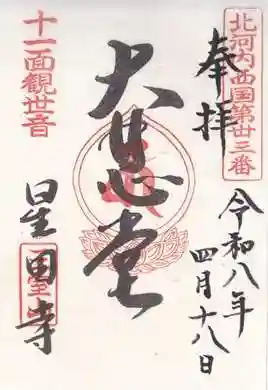 北河内西国第廿三番
奉拝
令和八年
四月十八日
大悲堂
十一面観世音
星田寺